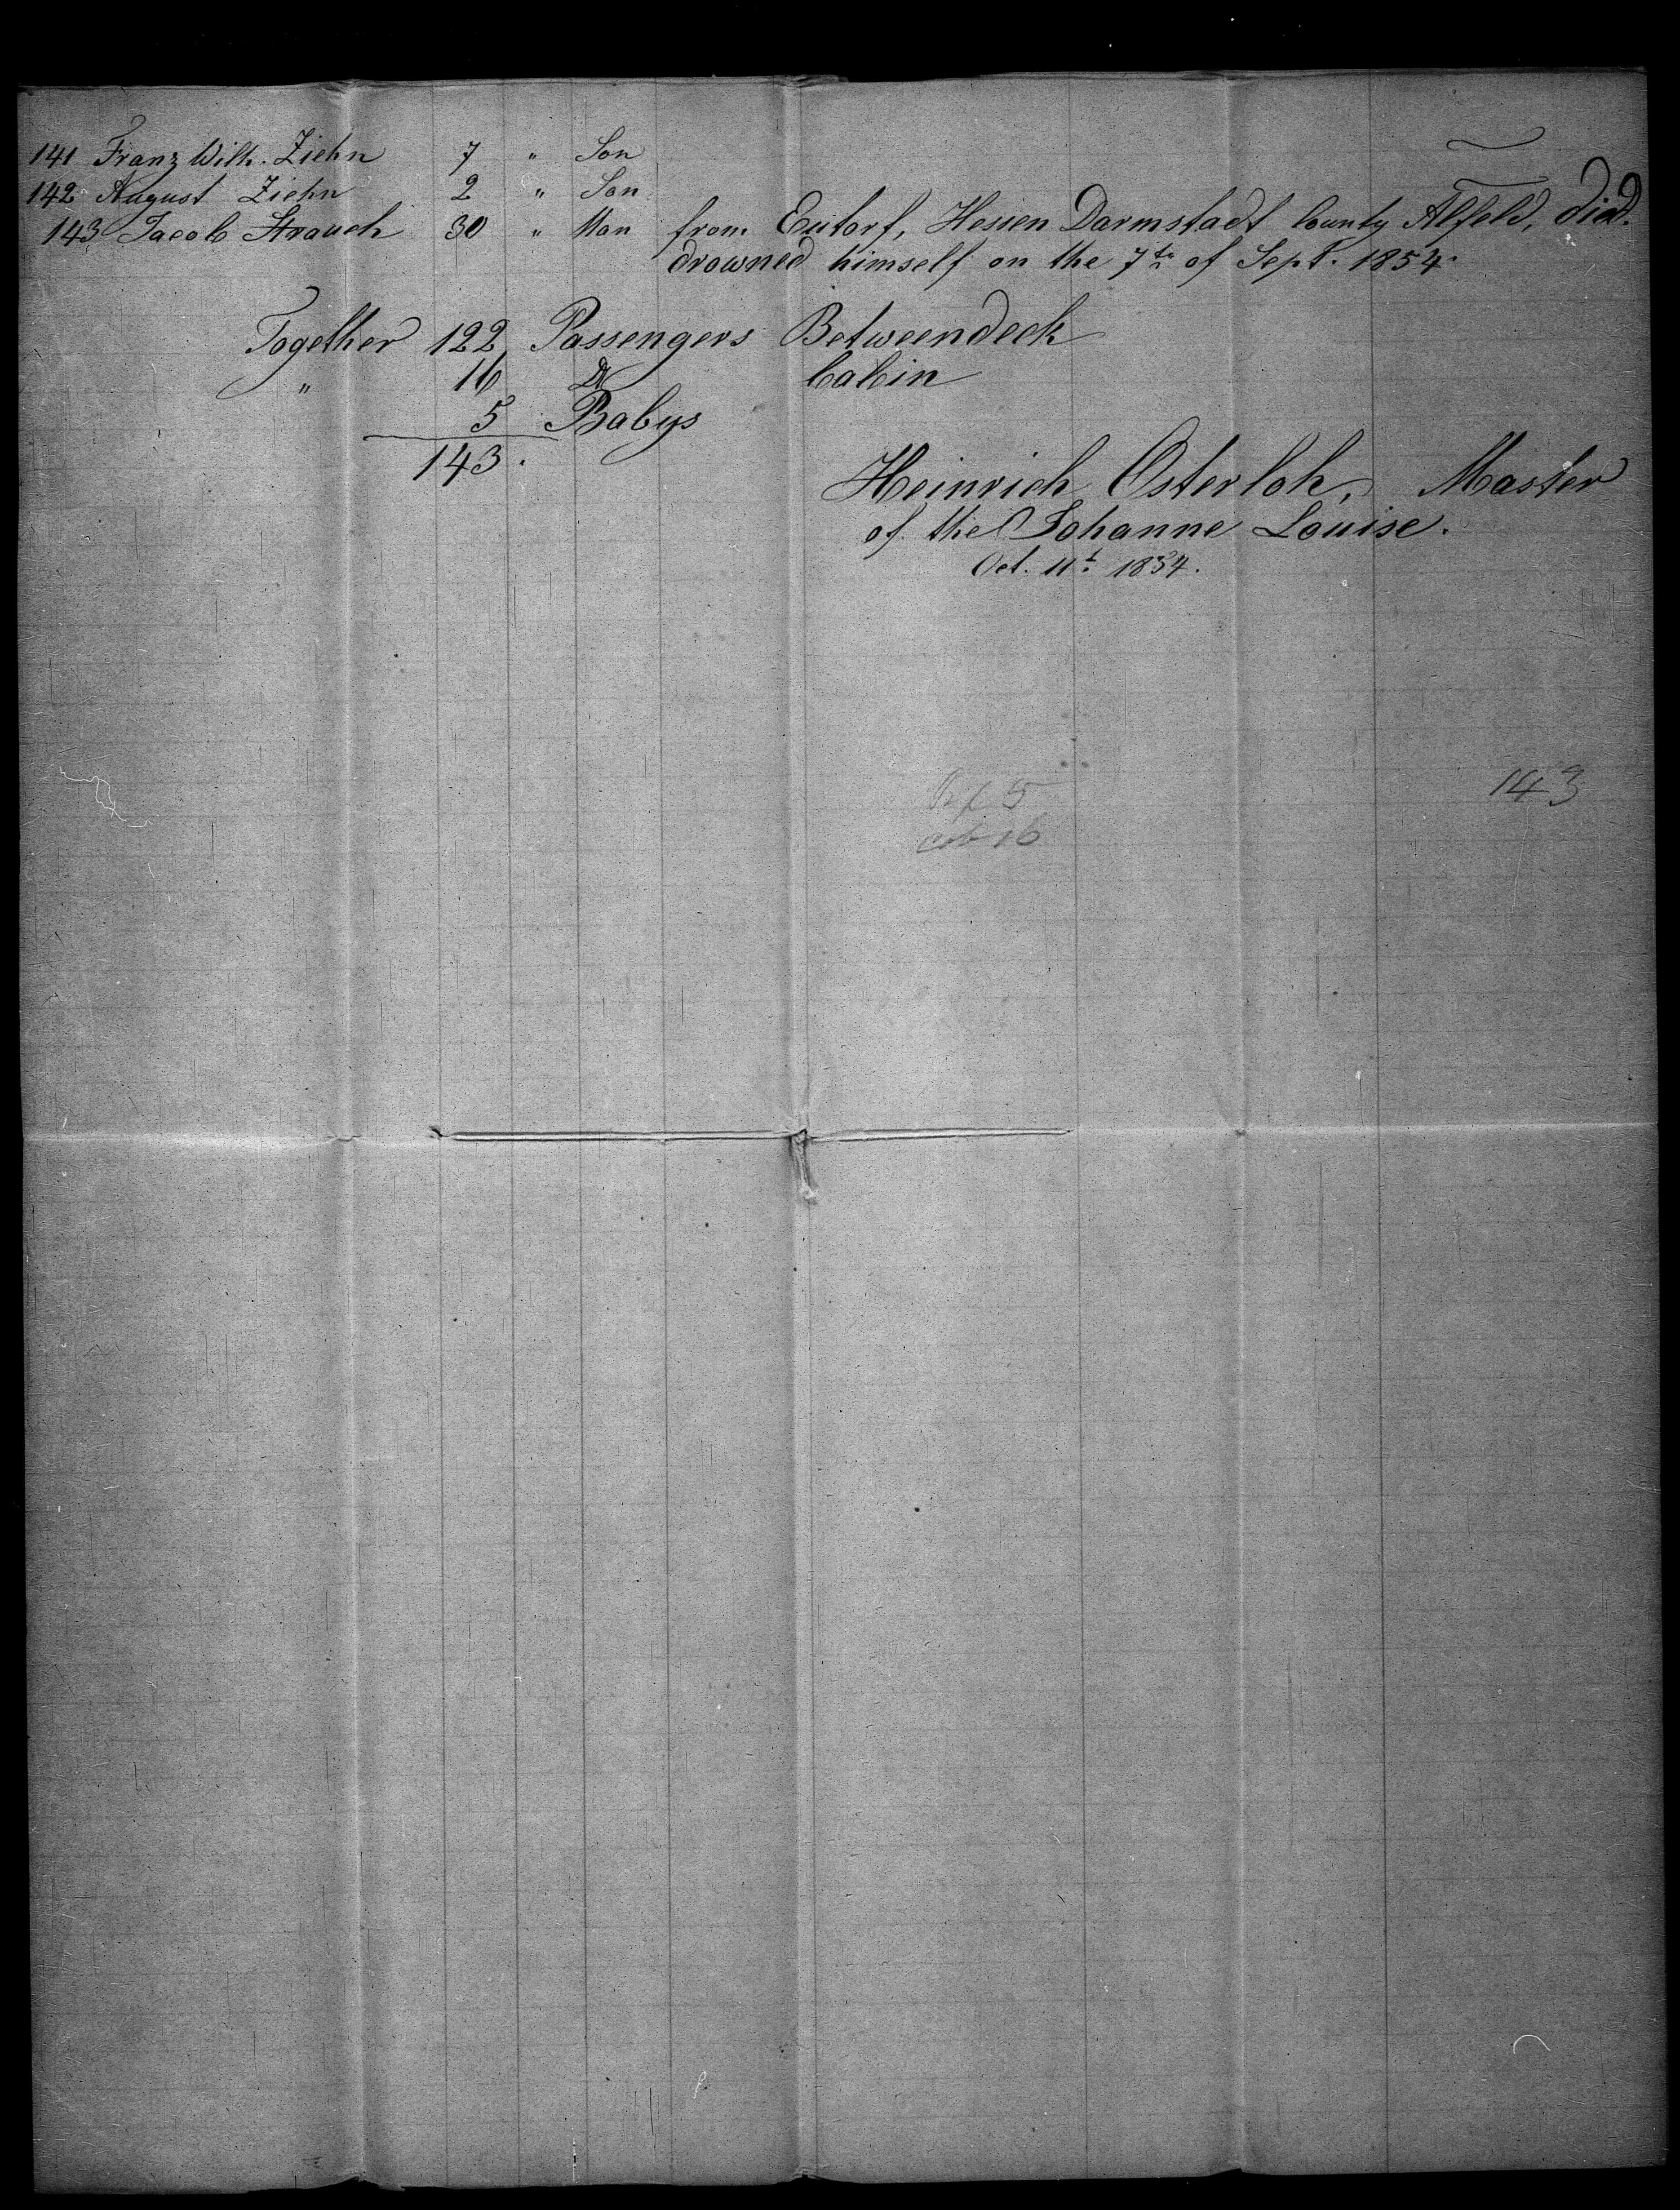 141 Franz Wilh. Ziehn 7 " Son
142 August Ziehn 2 " Son
143 Jacob Strauch 30 " Man from Eutorf, Hessen Darmstadt County Alfeld, died.
drowned himself on the 7th of Sept. 1854.
Together 122 Passengers Betweendeck
" 16 Do Cabin
5 Babys
143.
Heinrich Osterloh, Master
of the Johanne Louise.
Oct. 11t. 1854.
143
5
cab 16